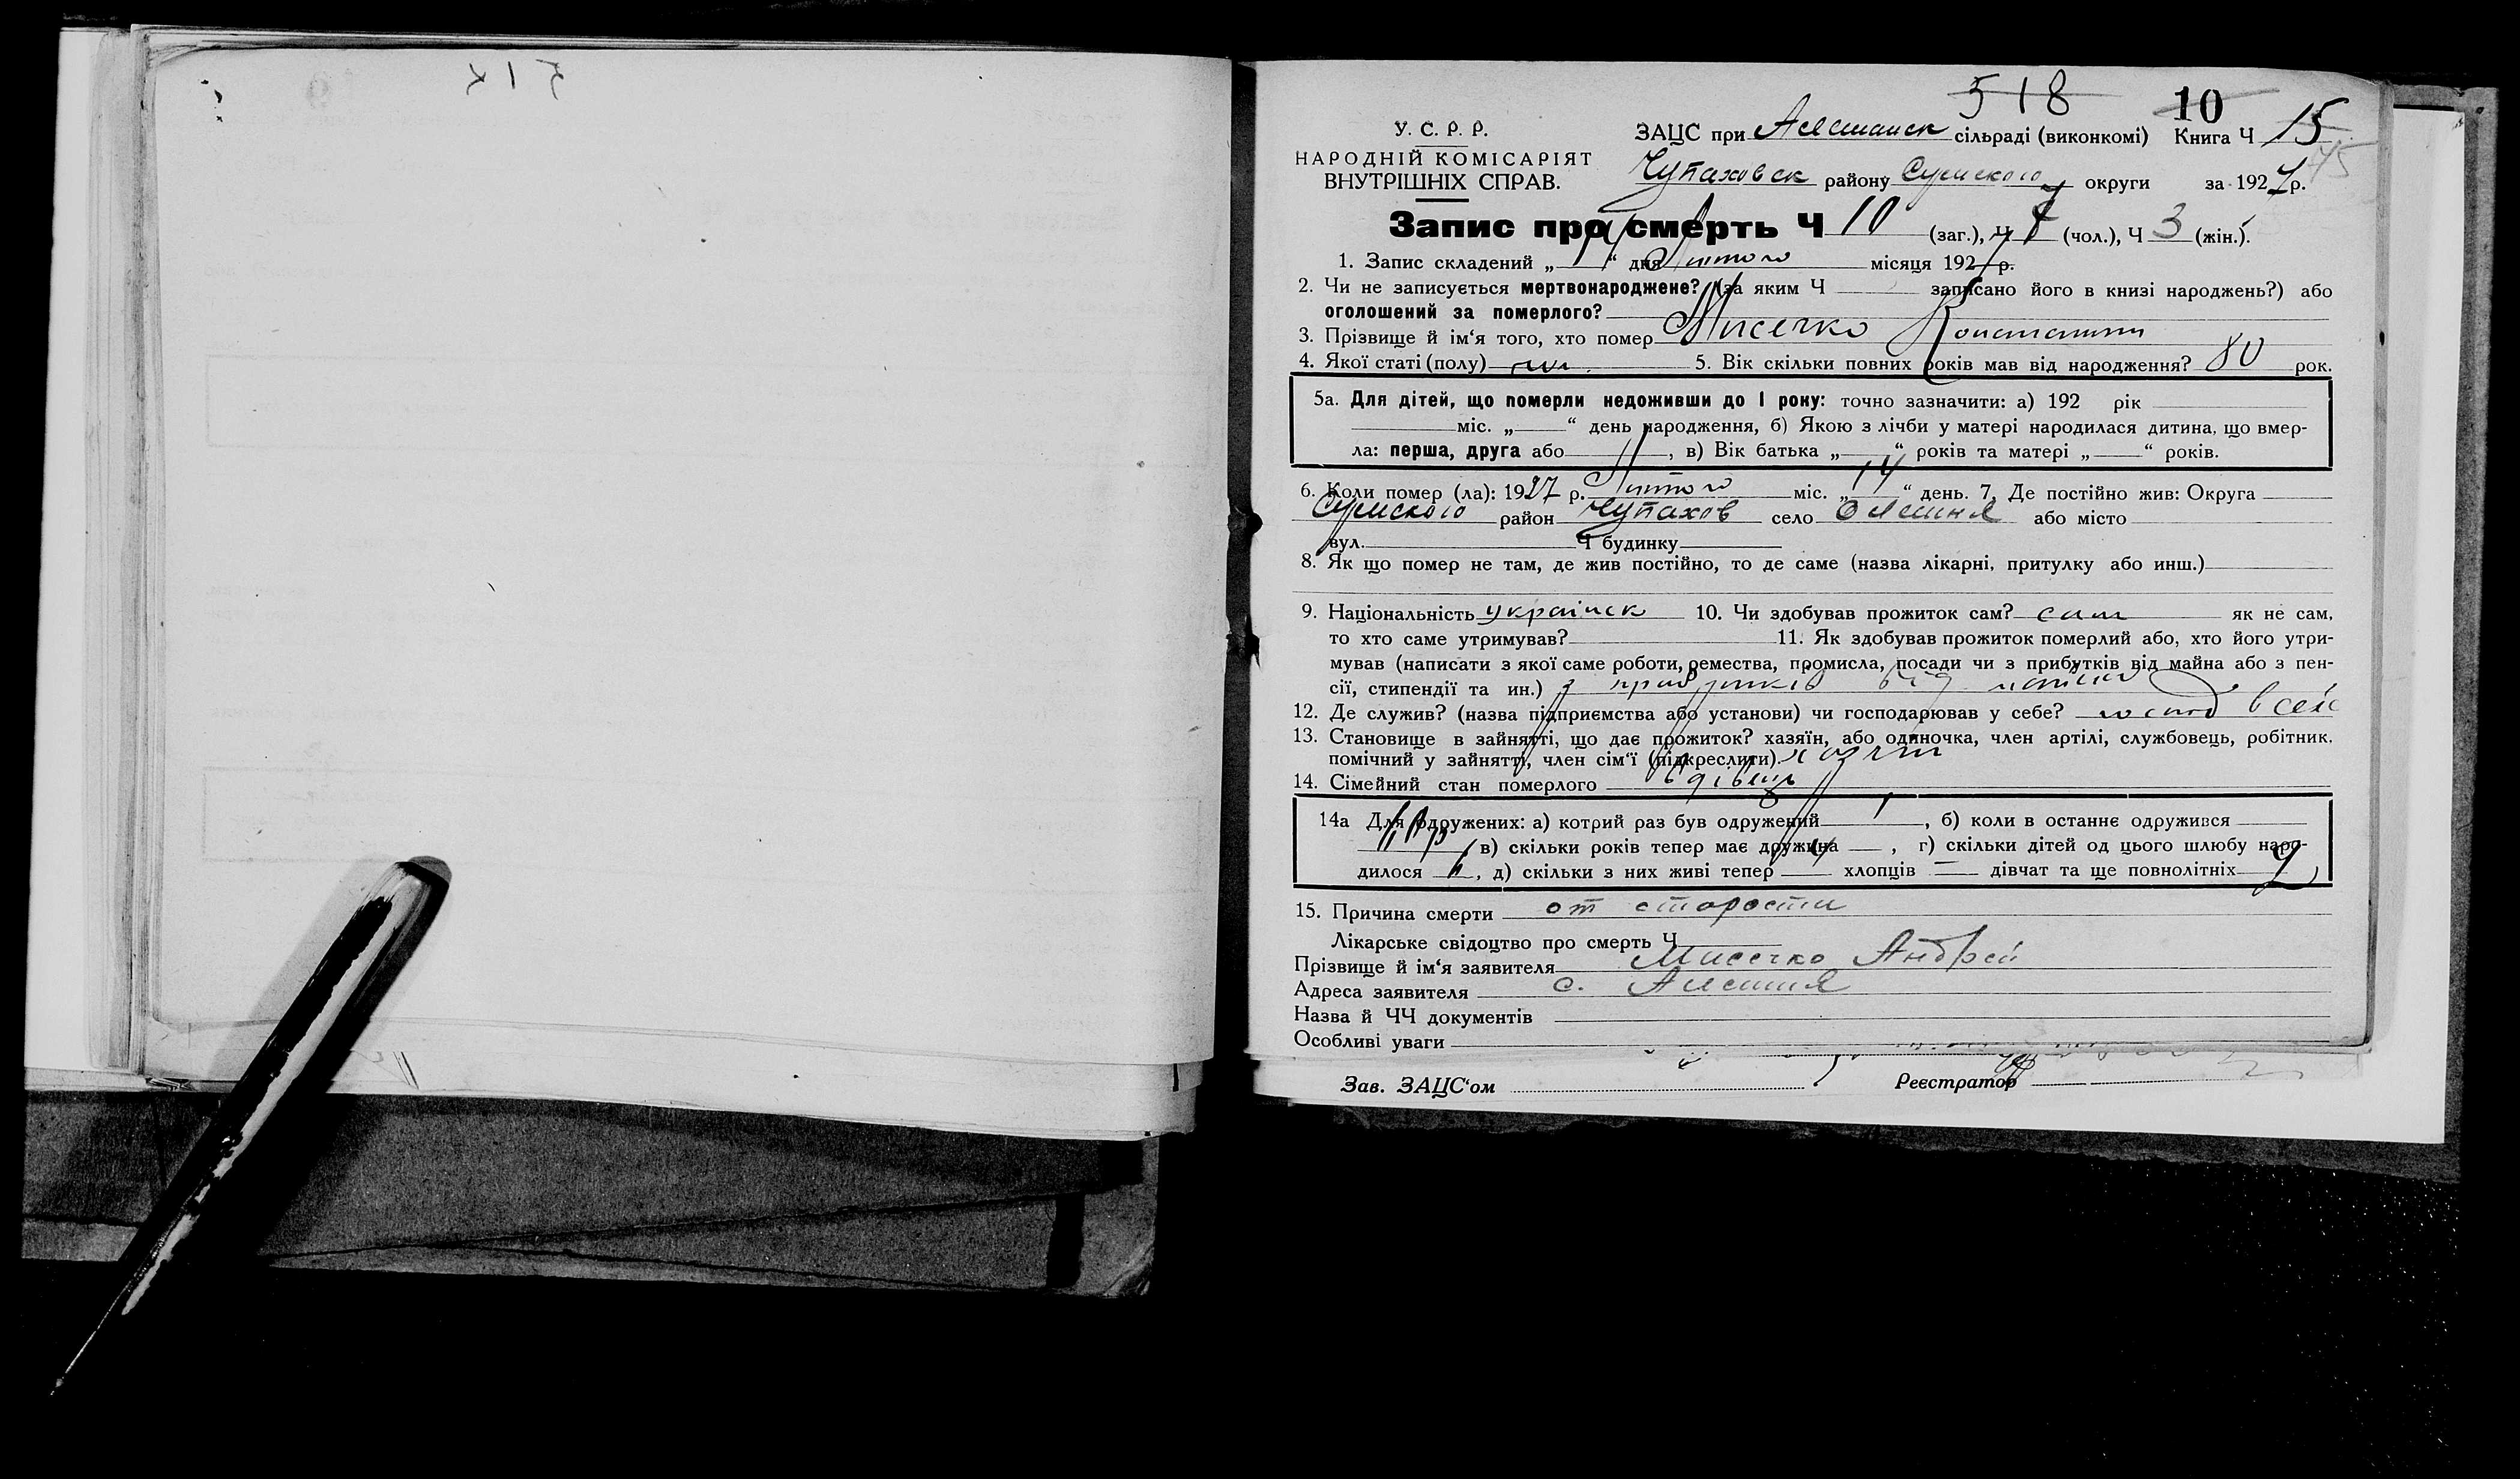 518 10
У. С. Р. Р. ЗАЦС при Алешанск сільраді (виконкомі) Книга Ч 15
НАРОДНІЙ КОМІСАРІЯТ
ВНУТРІШНІХ СПРАВ. Чупаховск району Сумского округи за 1927 р.
45
Запис про смерть Ч 10 (заг.), Ч 7 (чол.), Ч 3 (жін.).
1. Запис складений „14“ дня Лютого місяця 1927 р.
2. Чи не записується мертвонароджене? (за яким Ч записано його в книзі народжень?) або
оголошений за померлого?
3. Прізвище й ім‘я того, хто помер Мисечко Константин
4. Якої статі (полу) 5. Вік скільки повних років мав від народження? 80 рок.
5а. Для дітей, що померли недоживши до 1 року: точно зазначити: а) 192 рік
міс. „ “ день народження, б) Якою з лічби у матері народилася дитина, що вмер-
ла: перша, друга або , в) Вік батька „ “ років та матері „ “ років.
6. Коли помер (ла): 1927 р. Лютого міс. „14“ день. 7. Де постійно жив: Округа
Сумского район Чупахов село Олешня або місто
вул. Ч будинку
8. Як що помер не там, де жив постійно, то де саме (назва лікарні, притулку або инш.)
9. Національність українск 10. Чи здобував прожиток сам? сам як не сам,
то хто саме утримував? 11. Як здобував прожиток померлий або, хто його утри-
мував (написати з якої саме роботи, ремества, промисла, посади чи з прибутків від майна або з пен-
сії, стипендії та ин.) з прибутків від
12. Де служив? (назва підприємства або установи) чи господарював у себе? господ в себе
13. Становище в зайнятті, що дає прожиток? хазяїн, або одиночка, член артілі, службовець, робітник.
помічний у зайнятті, член сім‘ї (підкреслити). хазяїн
14. Сімейний стан померлого вдівець
14а Для одружених: а) котрий раз був одружений 1, б) коли в останнє одружився
, в) скільки років тепер має дружина — , г) скільки дітей од цього шлюбу наро-
дилося 6, д) скільки з них живі тепер 4 хлопців — дівчат та ще повнолітніх 2
15. Причина смерти от старости
Лікарське свідоцтво про смерть Ч
Прізвище й ім‘я заявителя Мисечко Андрей
Адреса заявителя с. Алешня
Назва й ЧЧ документів
Особливі уваги
Зав. ЗАЦС‘ом Реєстратор